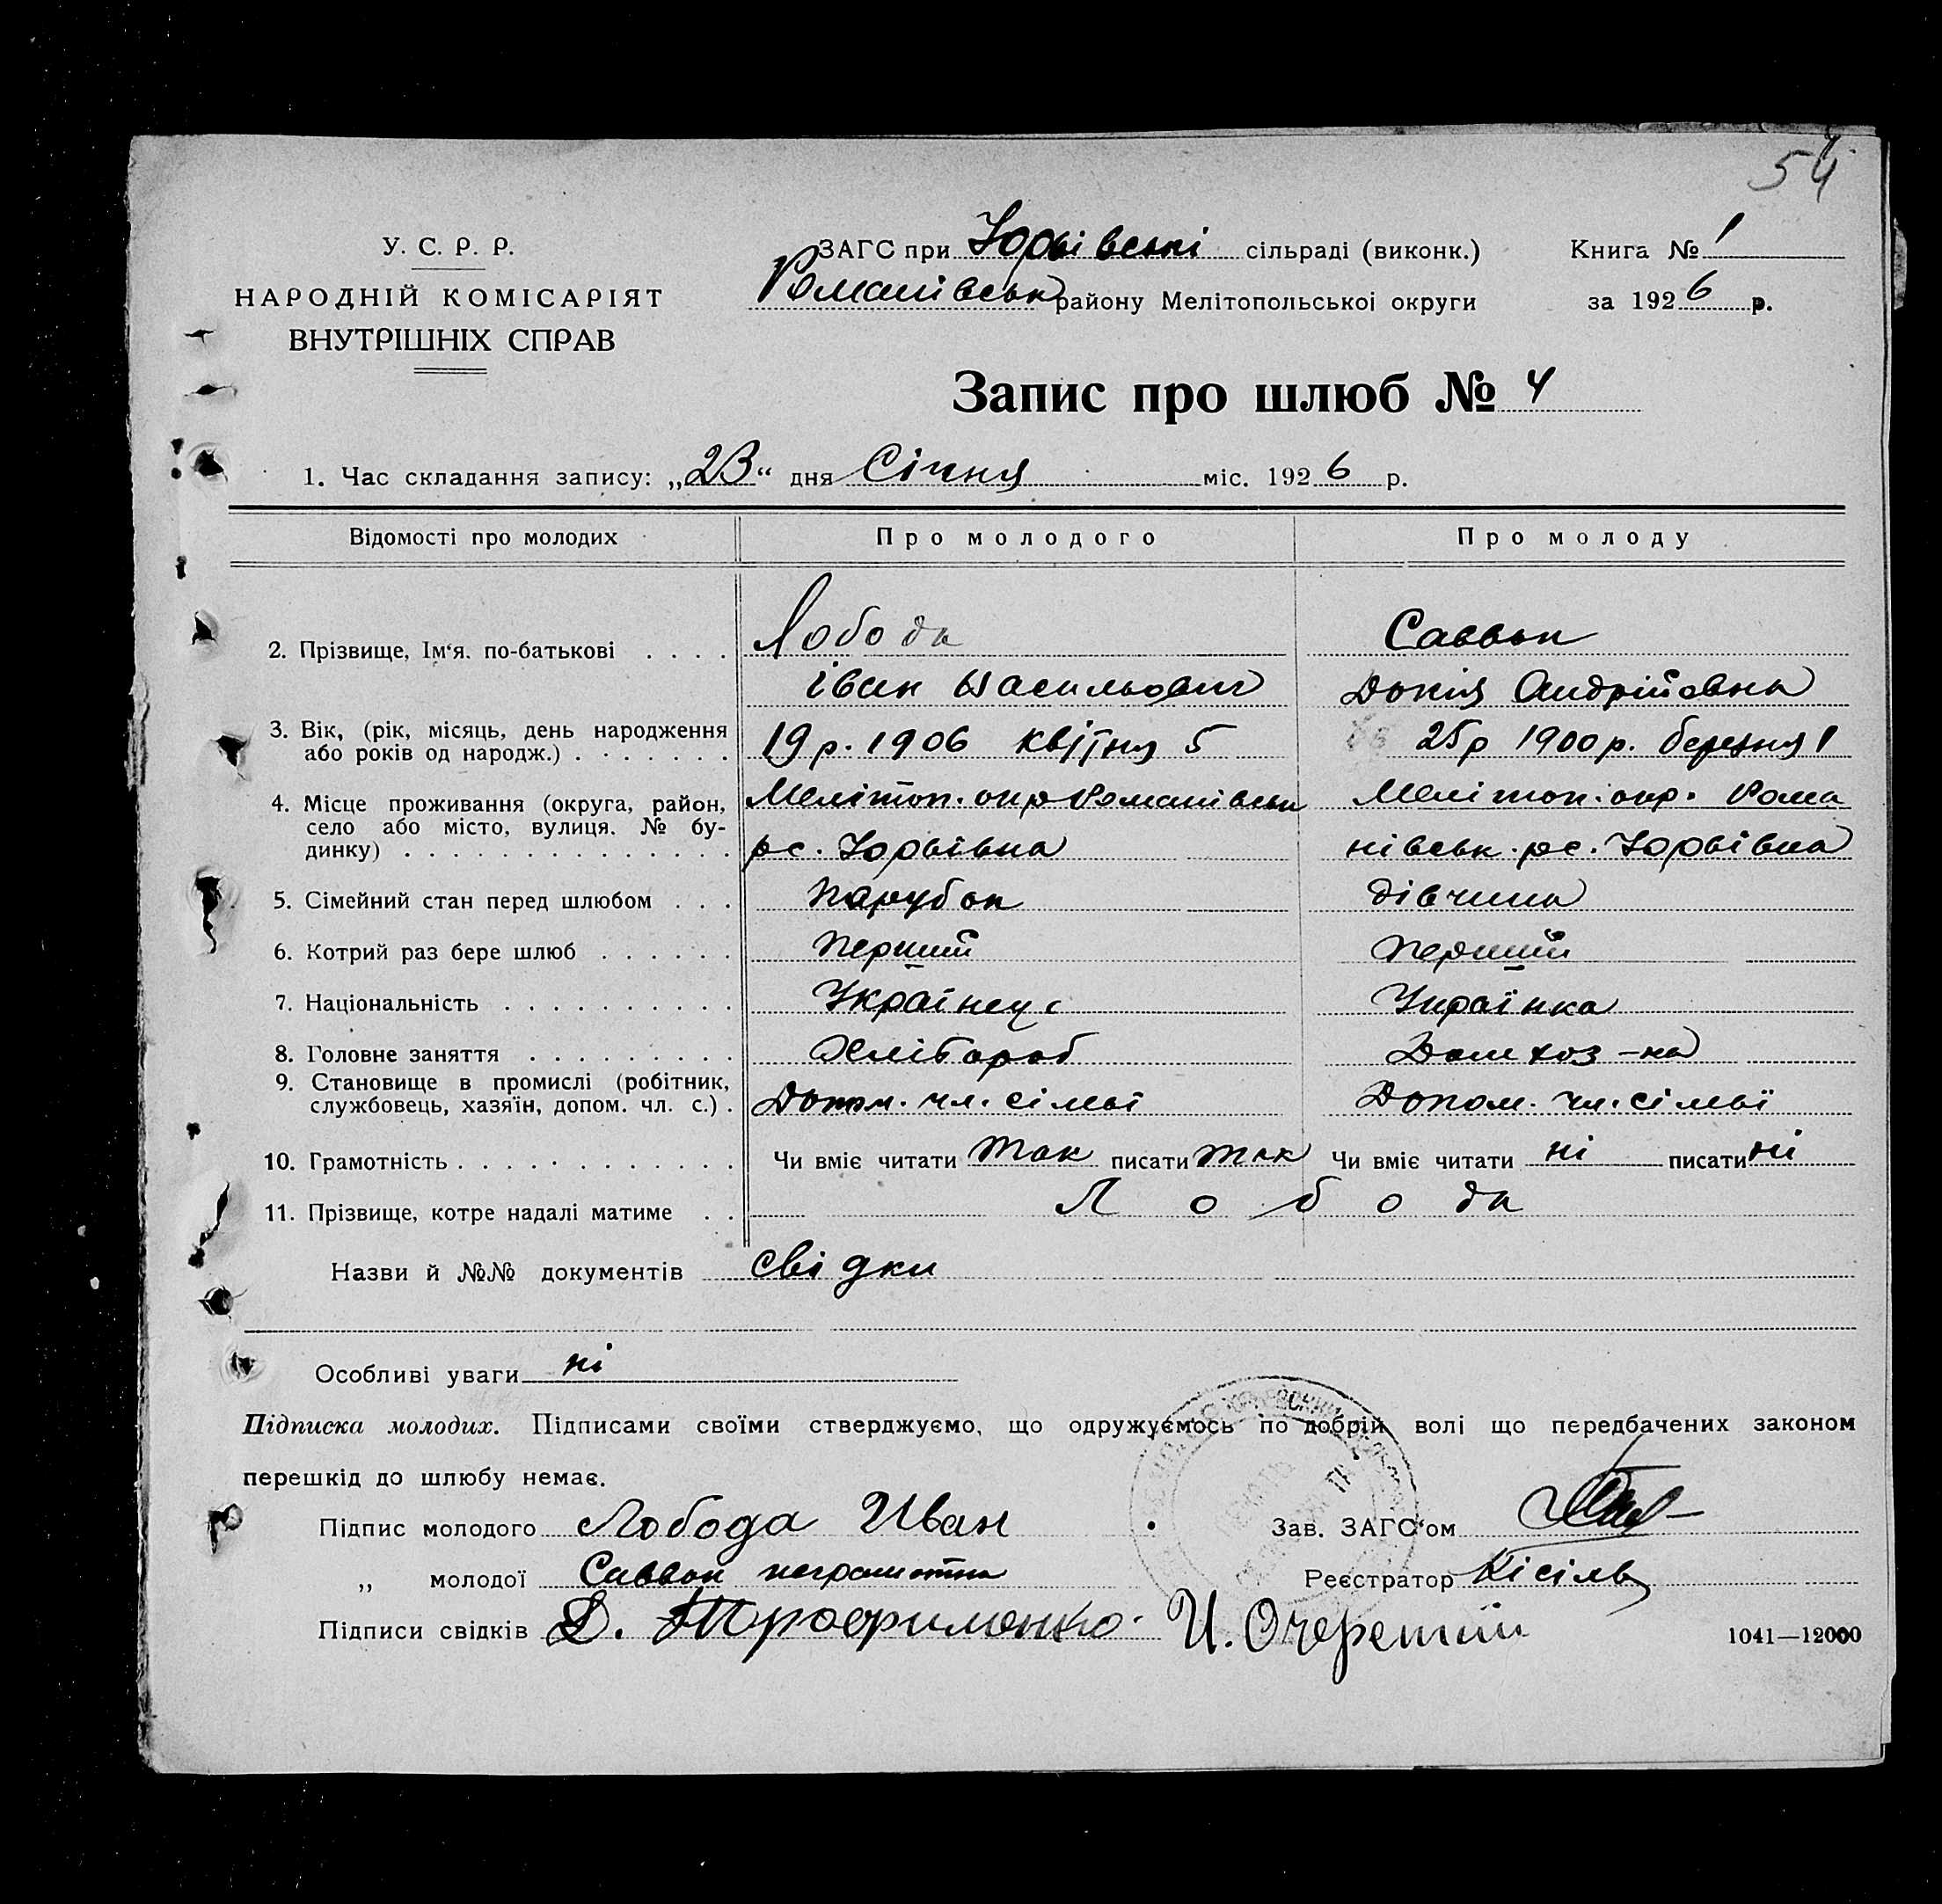 54
У. С. Р. Р.
НАРОДНІЙ КОМІСАРІЯТ
ВНУТРІШНІХ СПРАВ
ЗАГС при Юрьівські сільраді (виконк.)
Романівськ району Мелітопольської округи
Книга № 1
за 1926 р.
Запис про шлюб № 4
1. Час складання запису: „23“ дня Січня міс. 1926 р.
Відомості про молодих Про молодого Про молоду
2. Прізвище, Ім‘я. по-батькові . . . . Лобода Саввон
Іван Васильович Докія Андрійовна
3. Вік, (рік, місяць, день народження
або років од народж.) . . . . . . . 19 р. 1906 квітня 5 25 р 1900 р. березня 1
4. Місце проживання (округа, район,
село або місто, вулиця. № бу-
динку) . . . . . . . . . . . . . . .
Мелітоп. окр Романівськ
рс. Юрьівка
Мелітоп. окр. Рома
нівськ. рс. Юрьівка
5. Сімейний стан перед шлюбом . . . Парубок дівчина
6. Котрий раз бере шлюб . . . . . . Перший Перший
7. Національність . . . . . . . . . . Українець Українка
8. Головне заняття . . . . . . . . . Хлібороб Домхоз-ка
9. Становище в промислі (робітник,
службовець, хазяїн, допом. чл. с.) . Допом. чл. сімьї Допом. чл. сімьї
10. Грамотність . . . . . . . . . . . . Чи вміє читати Так писати так Чи вміє читати ні писати ні
11. Прізвище, котре надалі матиме . . Лобода
Назви й №№ документів свідки
Особливі уваги ні
Підписка молодих. Підписами своїми стверджуємо, що одружуємось по добрій волі що передбачених законом
перешкід до шлюбу немає.
Підпис молодого Лобода Иван Зав. ЗАГС‘ом
„ молодої Саввон неграмотна Реєстратор Кісіль
Підписи свідків Д. Трофименко. И. Очеретий
1041—12000